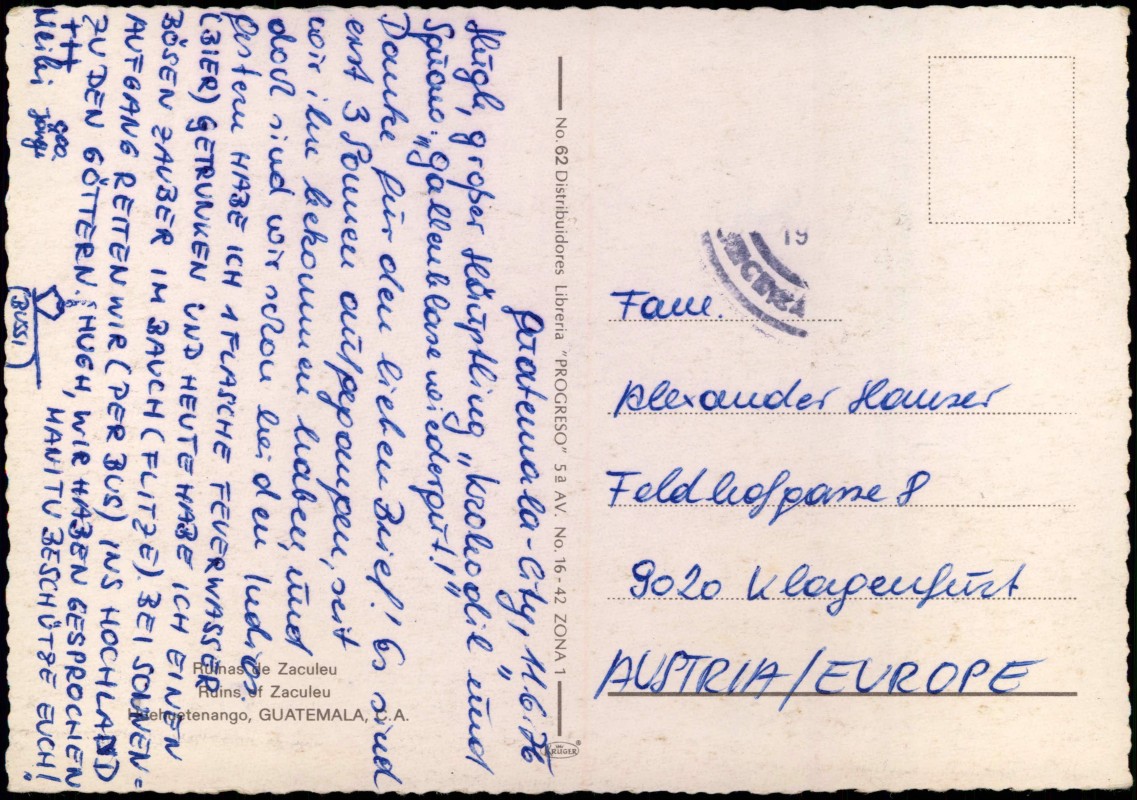 Guatemala-City, 11.6.76
Hugh, großer Häuptling „Krokodil und
Squaw „Gallenblase wiedergut!"
Danke für den lieben Brief! Es sind
erst 3 Sonnen aufgegangen, seit
wir ihn bekommen haben, und
doch sind wir schon bei den Indios.
Gestern HABE ICH 1 FLASCHE FEUERWASSER
(BIER) GETRUNKEN UND HEUTE HABE ICH EINEN
BÖSEN ZAUBER IM BAUCH (FLITZE). BEI SONNEN=
AUFGANG REITEN WIR (PER BUS) INS HOCHLAND
ZU DEN GÖTTERN. HUGH, WIR HABEN GESPROCHEN
MANITU BESCHÜTZE EUCH!
(BUSSI)
No. 62 Distribuidores Libreria "PROGRESO" 5ª AV. No. 16-42 ZONA 1
KRÜGER
Ruinas de Zaculeu
Ruins of Zaculeu
Huehuetenango, GUATEMALA, C.A.
19
Fam.
Alexander Hauser
Feldhofgasse 8
9020 Klagenfurt
AUSTRIA/EUROPE